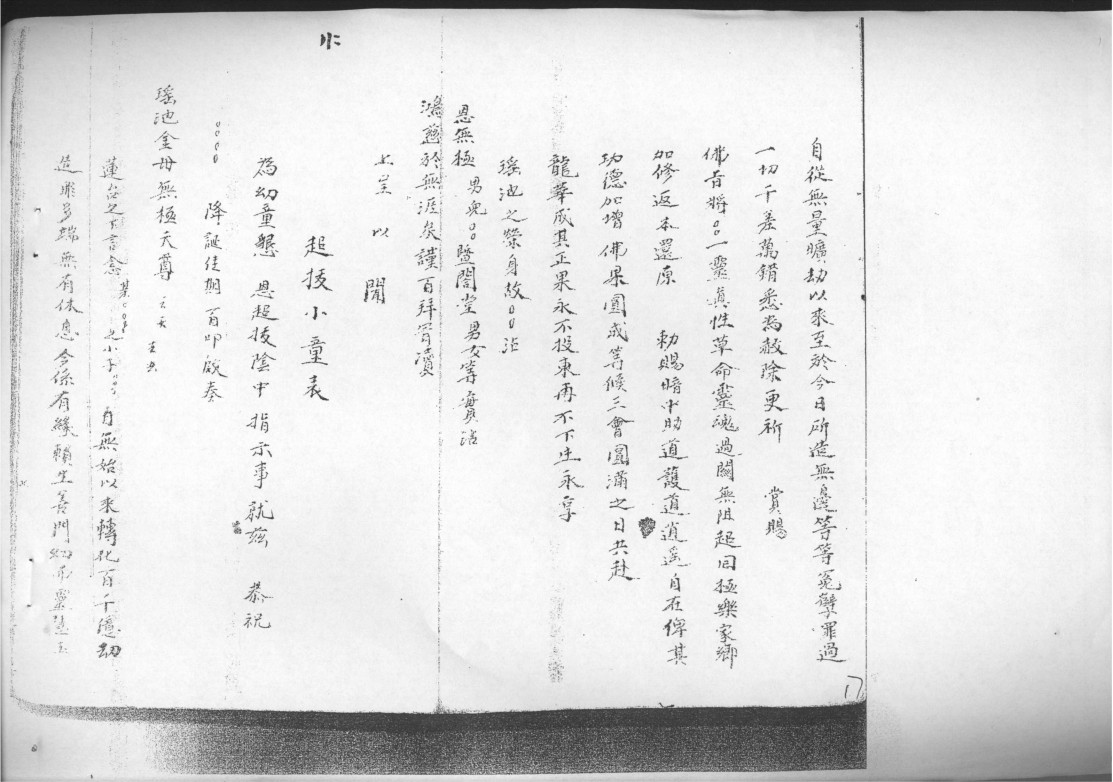 自從無量曠劫以來至於今日所造無邊等等冤孽罪過
一切千差萬錯悉為赦除更祈 賞賜
佛旨將○○一靈真性草命靈魂過關無阻起回極樂家鄉
加修返本還原 勅賜暗中助道護道逍遥自在俾其
功德加增佛果圓成等候三會圓滿之日共赴
龍華成其正果永不投東再不下生永享
瑤池之榮身故○○沾
恩無極 男兒○○暨閤堂男女等實沾
鴻慈於無涯矣謹百拜冐瀆
上呈以 聞
超拔小童表
為幼童懇 恩超拔陰中指示事就茲 恭祝
○○○○ 降誕佳期百叩啟奏
瑤池金母無極天尊
蓮台之下言念 自無始以來轉化百千億劫
造業多端無有休息今係有緣賴生善門幼而靈慧
17